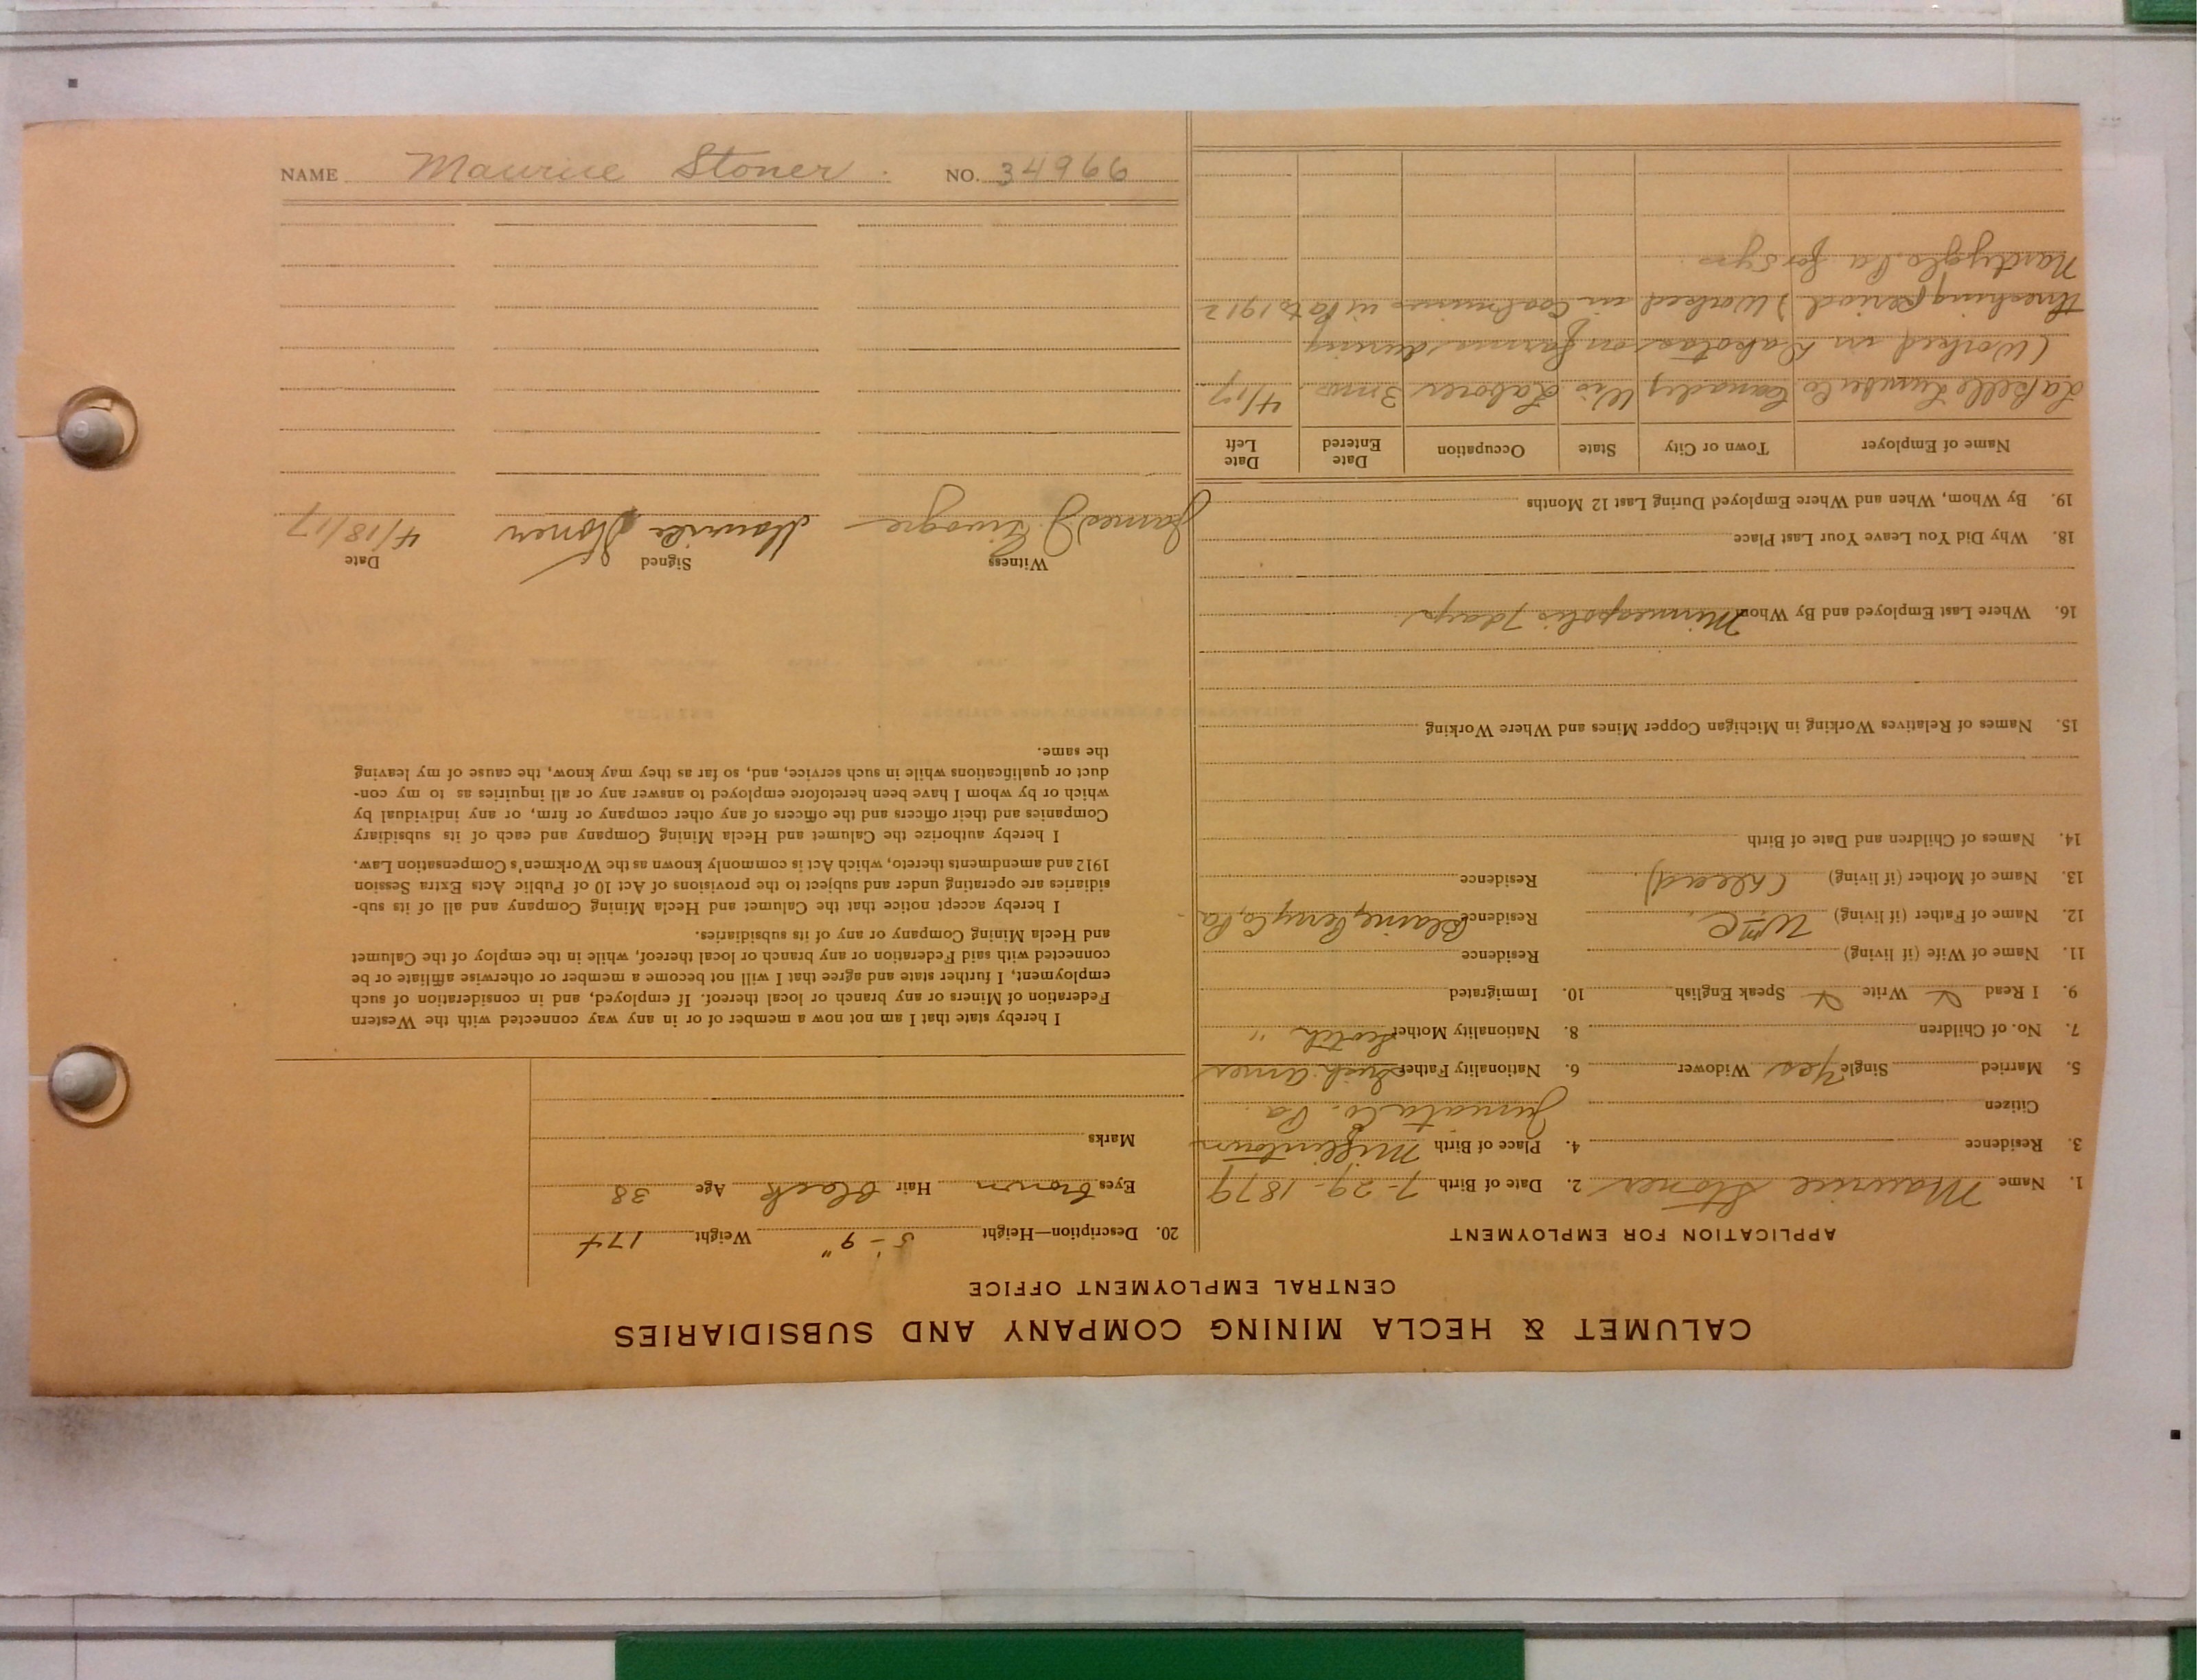 NAME Maurice Stoner. NO. 34966
CALUMET & HECLA MINING COMPANY AND SUBSIDIARIES
CENTRAL EMPLOYMENT OFFICE
APPLICATION FOR EMPLOYMENT
1. Name Maurice Stoner 2. Date of Birth 7-29-1879
3. Residence 4. Place of Birth Mifflintown
Citizen Juniata Co. Pa.
5. Married Single Yes Widower 6. Nationality Father Irish Amer
7. No. of Children 8. Nationality Mother Scotch "
9. I Read Write Speak English 10. Immigrated
11. Name of Wife (if living) Residence
12. Name of Father (if living) Wm C. Residence Blaine, Perry Co, Pa
13. Name of Mother (if living) (Dead) Residence
14. Names of Children and Date of Birth
15. Names of Relatives Working in Michigan Copper Mines and Where Working
16. Where Last Employed and By Whom Minneapolis 7 days.
18. Why Did You Leave Your Last Place
19. By Whom, When and Where Employed During Last 12 Months
Name of Employer Town or City State Occupation Date Entered Date Left
Lumber Co Wis Laborer 3 mos. 4/17
(Worked in Dakotas on farms during
threshing period) Worked in Coal mines in Pa to 1912
Pa for 5 yrs.
20. Description—Height 5'-9" Weight 174
Eyes brown Hair black Age 38
Marks
I hereby state that I am not now a member of or in any way connected with the Western
Federation of Miners or any branch or local thereof. If employed, and in consideration of such
employment, I further state and agree that I will not become a member or otherwise affiliate or be
connected with said Federation or any branch or local thereof, while in the employ of the Calumet
and Hecla Mining Company or any of its subsidiaries.
I hereby accept notice that the Calumet and Hecla Mining Company and all of its sub-
sidiaries are operating under and subject to the provisions of Act 10 of Public Acts Extra Session
1912 and amendments thereto, which Act is commonly known as the Workmen's Compensation Law.
I hereby authorize the Calumet and Hecla Mining Company and each of its subsidiary
Companies and their officers and the officers of any other company or firm, or any individual by
which or by whom I have been heretofore employed to answer any or all inquiries as to my con-
duct or qualifications while in such service, and, so far as they may know, the cause of my leaving
the same.
Witness Signed Date
James J. Maurice Stoner 4/18/17